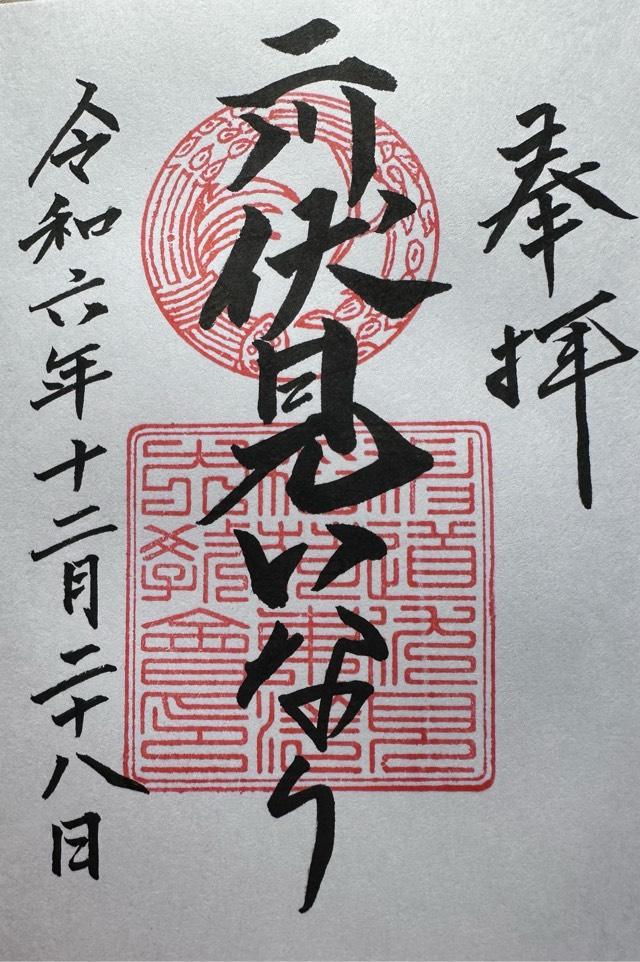 奉拝
二川伏見いなり
令和六年十二月二十八日